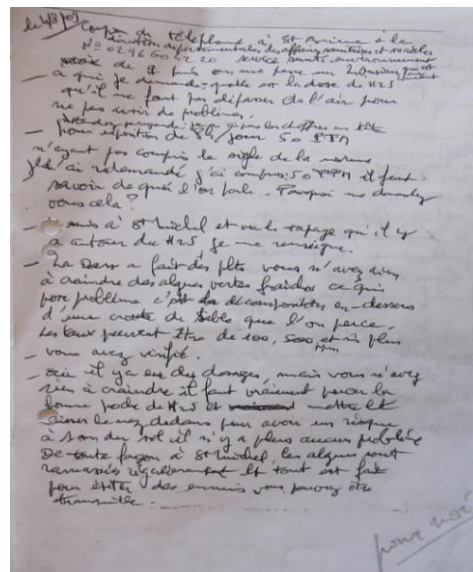 le 4/8/09 Coup de téléphone à St Brieuc à la
direction départementale des affaires sanitaires et sociales
N° 0296604220 service santé environnement
de 9 puis on me passe un Monsieur qui est
— à qui je demande quelle est la dose de H2S
qu'il ne faut pas dépasser de l'air pour
ne pas avoir de problèmes.
pas les chiffres en tête
— pour exposition de 8h/jour 50 PPM
n'ayant pas compris le sigle de la norme
je l'ai redemandé j'ai compris 50 PPM il faut
savoir de quoi l'on parle. Pourquoi me demandez
vous cela?
— suis à St Michel et vu le tapage qu'il y
a autour du H2S je me renseigne.
— La Dass a fait des vous n'avez rien
à craindre des algues vertes fraîches ce qui
pose problème c'est la décomposition en-dessous
d'une croute de sable que l'on perce.
Les taux peuvent être de 100, 500 et plus
— vous avez vérifié.
— oui il y a eu des dosages, mais vous n'avez
rien à craindre il faut vraiment percer la
bonne poche de H2S et mettre le
nez dedans pour avoir un risque
à 1 m du sol il n'y a plus aucun problème
De toute façon à St Michel, les algues sont
ramassées régulièrement et tout est fait
pour éviter des ennuis vous pouvez être
tranquille.
pour moi